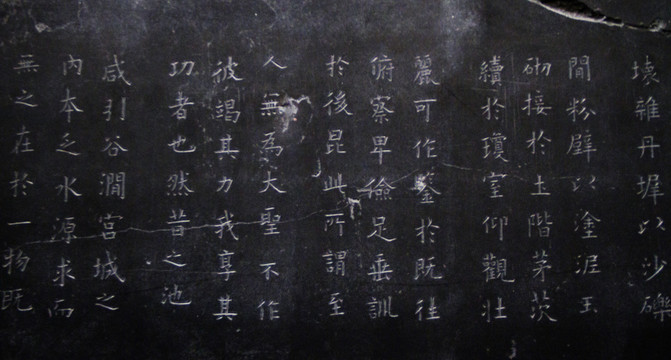 壞雜丹墀以沙礫
間粉壁以塗泥玉
砌接於土階茅茨
續於瓊室仰觀壯
麗可作鑒於既往
俯察卑儉足垂訓
於後昆此所謂至
人無為大聖不作
彼竭其力我享其
功者也然昔之池
咸引谷澗宮城之
內本乏水源求而
無之在於一物既